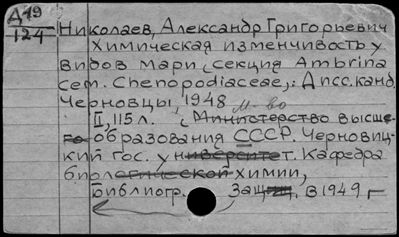 Д19
124
Николаев, Александр Григорьевич
Химическая изменчивость у
видов мари, секция Ambrina
сем. Chenopodiaceae,: Дисс. канд.
Черновцы, 1948
М-во
II, 115 л. (Министерство высше-
го образования СССР. Черновиц-
кий гос. университет. Кафедра
биологической химии,
Библиогр. Защ. в 1949 г